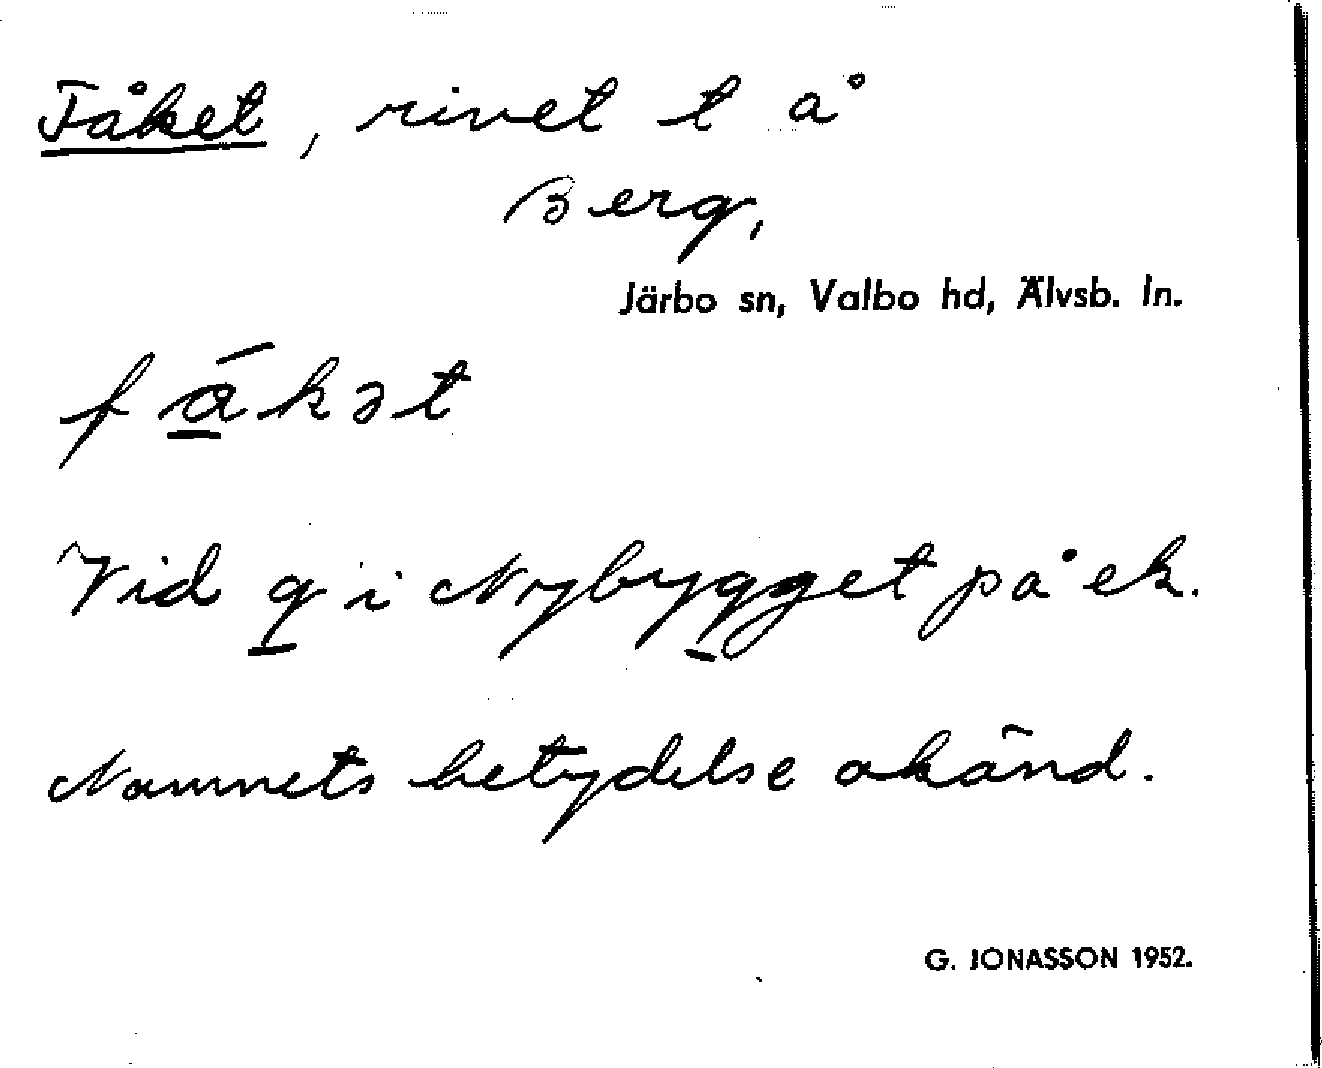 Fåket, rivet t å
Berg,
Järbo sn, Valbo hd, Älvsb. ln.
fa̲̅kət
Vid g i Nybygget på ek.
Namnets betydelse okänd.
G. JONASSON 1952.